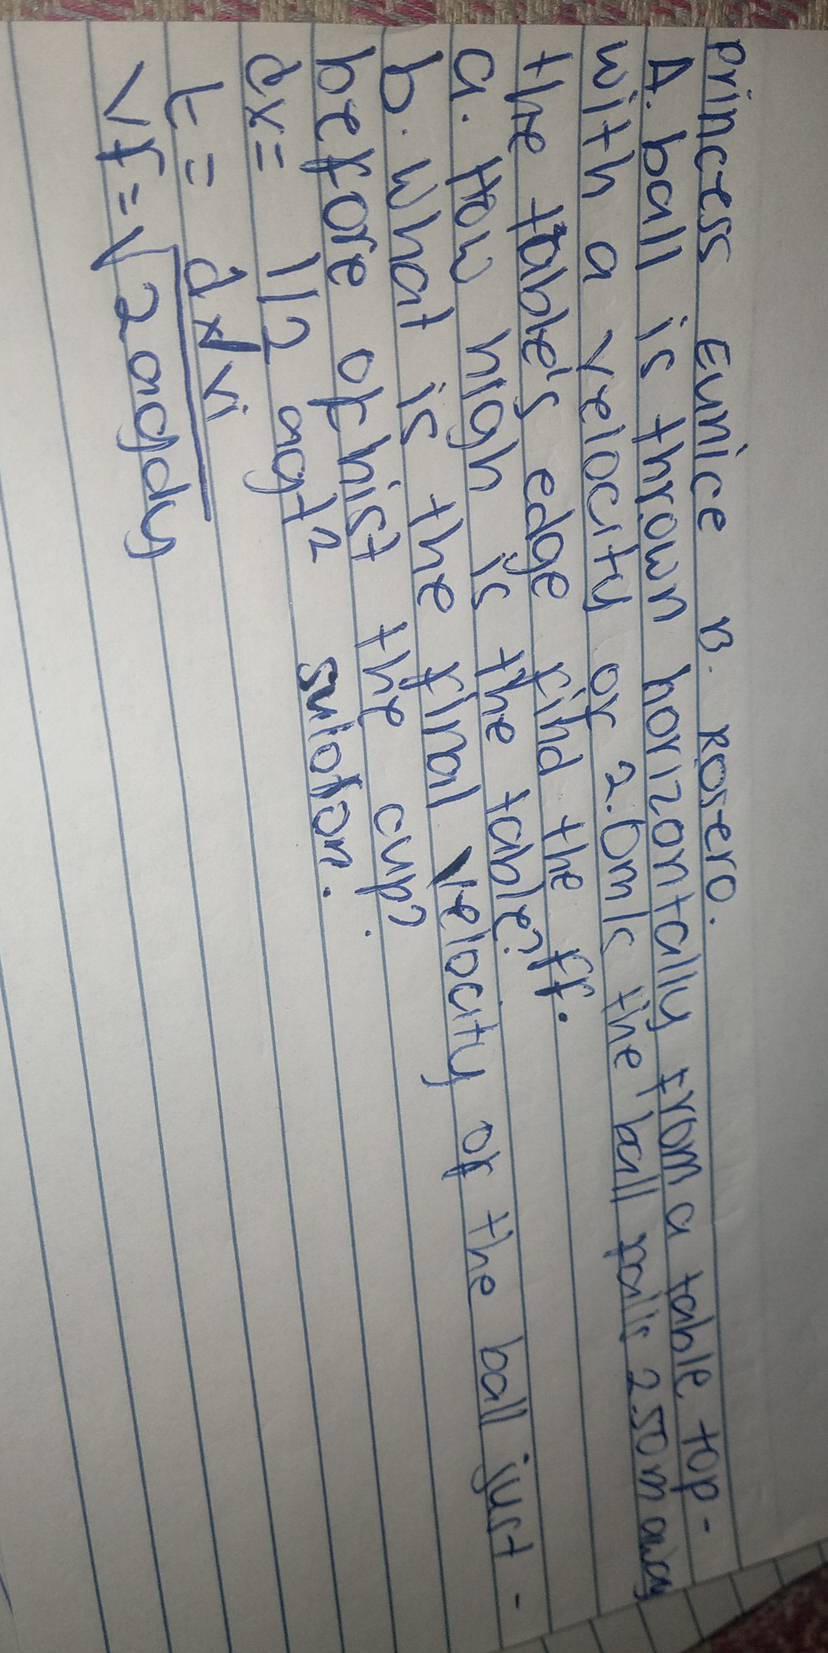 Princess Eunice B. Rosero.
A. ball is thrown horizontally from a table top-
with a velocity of 2.0m/s the ball falls 2.50m away
the table's edge find the ff.
a. How high is the table?
b. What is the final velocity of the ball just -
before of hist the cup?
dx= 1/2 agt2 suloton.
t= dx/vi
vf=√2agdy